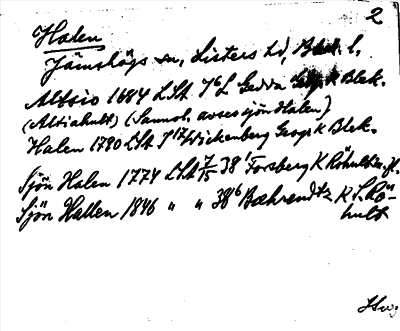 2
Halen
Jämshögs sn, Listers hd, Blek. l.
Altsio 1684 LSA 76 L Gedda Geogr K Blek.
(Altiahult) (Sannol. avses sjön Halen)
Halen 1780 LSA 717 Wickenberg Geogr K Blek.
Sjön Halen 1774 LSA 7/15 38¹ Forsberg K Röhult m. fl.
Sjön Hallen 1846 " " 38⁶ Bæhrendtz K S. Rö-
hult